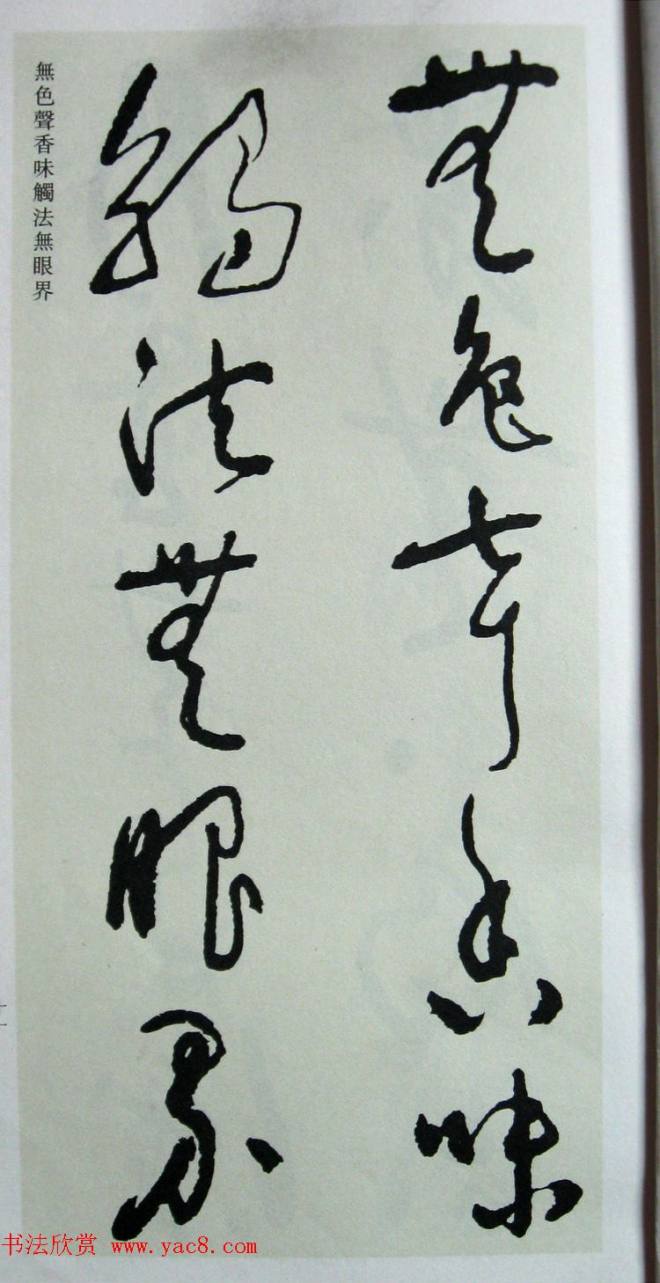 無色聲香味
觸法無眼界
無色聲香味觸法無眼界
书法欣赏 www.yac8.com